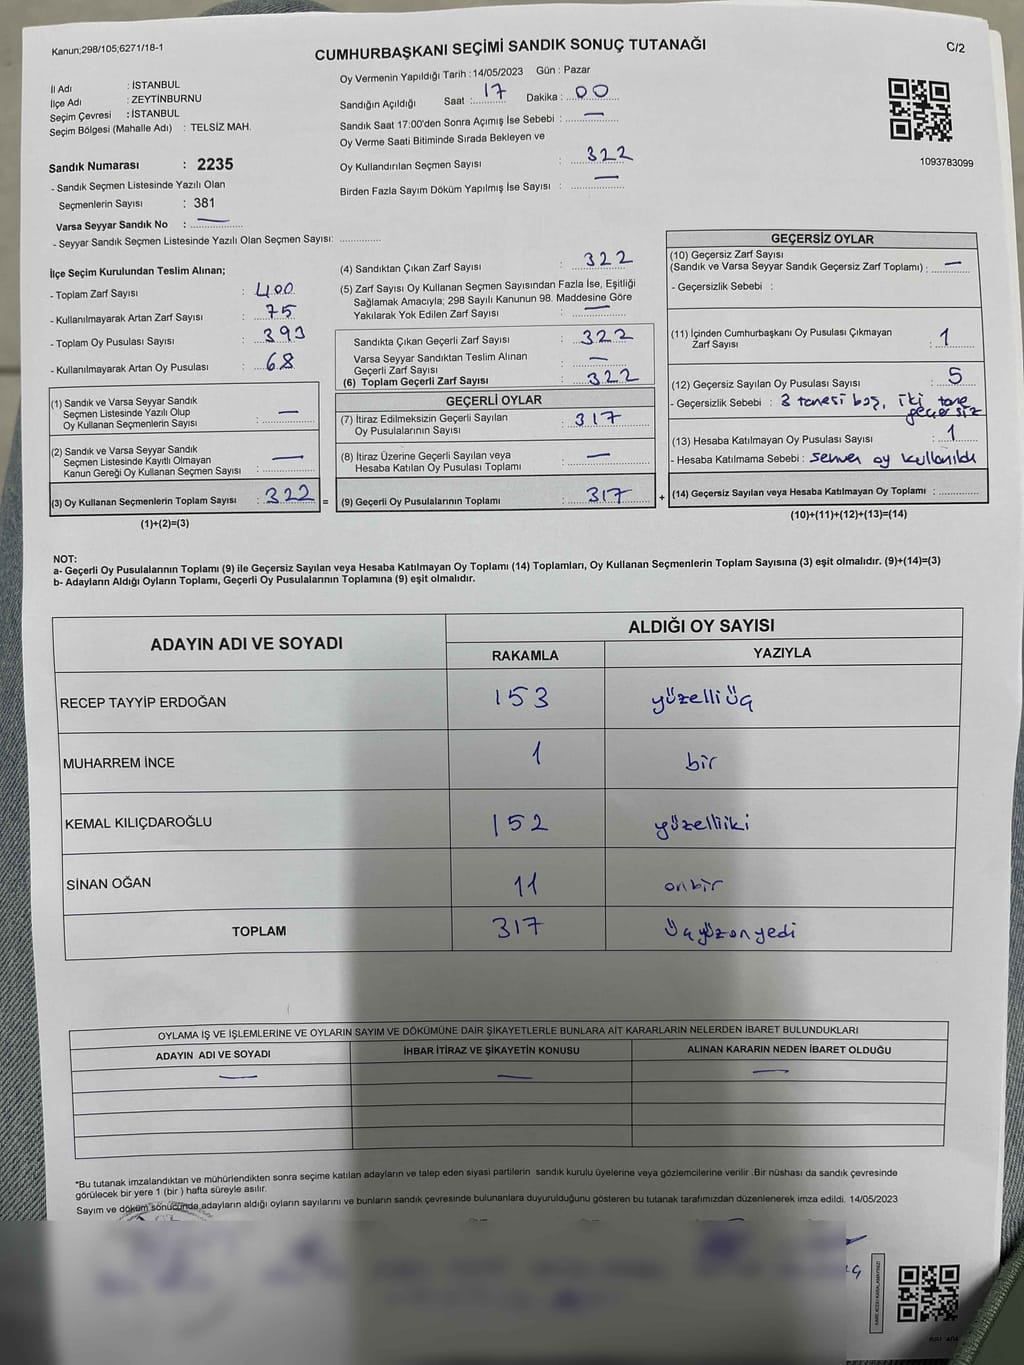 Kanun;298/105;6271/18-1
CUMHURBAŞKANI SEÇİMİ SANDIK SONUÇ TUTANAĞI
C/2
İl Adı : İSTANBUL
İlçe Adı : ZEYTİNBURNU
Seçim Çevresi : İSTANBUL
Seçim Bölgesi (Mahalle Adı) : TELSİZ MAH.
Sandık Numarası : 2235
- Sandık Seçmen Listesinde Yazılı Olan
Seçmenlerin Sayısı : 381
Varsa Seyyar Sandık No : —
- Seyyar Sandık Seçmen Listesinde Yazılı Olan Seçmen Sayısı: ............
Oy Vermenin Yapıldığı Tarih : 14/05/2023 Gün : Pazar
Sandığın Açıldığı Saat : 17 Dakika : 00
Sandık Saat 17:00'den Sonra Açımış İse Sebebi : —
Oy Verme Saati Bitiminde Sırada Bekleyen ve
Oy Kullandırılan Seçmen Sayısı 322
Birden Fazla Sayım Döküm Yapılmış İse Sayısı : —
1093783099
İlçe Seçim Kurulundan Teslim Alınan;
- Toplam Zarf Sayısı : 400
- Kullanılmayarak Artan Zarf Sayısı : 75
- Toplam Oy Pusulası Sayısı : 393
- Kullanılmayarak Artan Oy Pusulası : 68
(1) Sandık ve Varsa Seyyar Sandık
Seçmen Listesinde Yazılı Olup
Oy Kullanan Seçmenlerin Sayısı : —
(2) Sandık ve Varsa Seyyar Sandık
Seçmen Listesinde Kayıtlı Olmayan
Kanun Gereği Oy Kullanan Seçmen Sayısı : —
(3) Oy Kullanan Seçmenlerin Toplam Sayısı : 322 =
(1)+(2)=(3)
(4) Sandıktan Çıkan Zarf Sayısı : 322
(5) Zarf Sayısı Oy Kullanan Seçmen Sayısından Fazla İse, Eşitliği
Sağlamak Amacıyla; 298 Sayılı Kanunun 98. Maddesine Göre
Yakılarak Yok Edilen Zarf Sayısı : —
Sandıkta Çıkan Geçerli Zarf Sayısı : 322
Varsa Seyyar Sandıktan Teslim Alınan
Geçerli Zarf Sayısı : —
(6) Toplam Geçerli Zarf Sayısı : 322
GEÇERLİ OYLAR
(7) İtiraz Edilmeksizin Geçerli Sayılan
Oy Pusulalarının Sayısı : 317
(8) İtiraz Üzerine Geçerli Sayılan veya
Hesaba Katılan Oy Pusulası Toplamı : —
(9) Geçerli Oy Pusulalarının Toplamı : 317 +
GEÇERSİZ OYLAR
(10) Geçersiz Zarf Sayısı
(Sandık ve Varsa Seyyar Sandık Geçersiz Zarf Toplamı) : —
- Geçersizlik Sebebi :
(11) İçinden Cumhurbaşkanı Oy Pusulası Çıkmayan
Zarf Sayısı : 1
(12) Geçersiz Sayılan Oy Pusulası Sayısı : 5
- Geçersizlik Sebebi : 3 tanesi boş, iki tane
geçersiz
(13) Hesaba Katılmayan Oy Pusulası Sayısı : 1
- Hesaba Katılmama Sebebi : sehven oy kullanıldı
(14) Geçersiz Sayılan veya Hesaba Katılmayan Oy Toplamı : ............
(10)+(11)+(12)+(13)=(14)
NOT:
a- Geçerli Oy Pusulalarının Toplamı (9) ile Geçersiz Sayılan veya Hesaba Katılmayan Oy Toplamı (14) Toplamları, Oy Kullanan Seçmenlerin Toplam Sayısına (3) eşit olmalıdır. (9)+(14)=(3)
b- Adayların Aldığı Oyların Toplamı, Geçerli Oy Pusulalarının Toplamına (9) eşit olmalıdır.
ADAYIN ADI VE SOYADI
ALDIĞI OY SAYISI
RAKAMLA YAZIYLA
RECEP TAYYİP ERDOĞAN 153 yüzelliüç
MUHARREM İNCE 1 bir
KEMAL KILIÇDAROĞLU 152 yüzelliiki
SİNAN OĞAN 11 onbir
TOPLAM 317 üçyüzonyedi
OYLAMA İŞ VE İŞLEMLERİNE VE OYLARIN SAYIM VE DÖKÜMÜNE DAİR ŞİKAYETLERLE BUNLARA AİT KARARLARIN NELERDEN İBARET BULUNDUKLARI
ADAYIN ADI VE SOYADI İHBAR İTİRAZ VE ŞİKAYETİN KONUSU ALINAN KARARIN NEDEN İBARET OLDUĞU
— — —
*Bu tutanak imzalandıktan ve mühürlendikten sonra seçime katılan adayların ve talep eden siyasi partilerin sandık kurulu üyelerine veya gözlemcilerine verilir .Bir nüshası da sandık çevresinde
görülecek bir yere 1 (bir ) hafta süreyle asılır.
Sayım ve döküm sonucunda,adayların aldığı oyların sayılarını ve bunların sandık çevresinde bulunanlara duyurulduğunu gösteren bu tutanak tarafımızdan düzenlenerek imza edildi. 14/05/2023